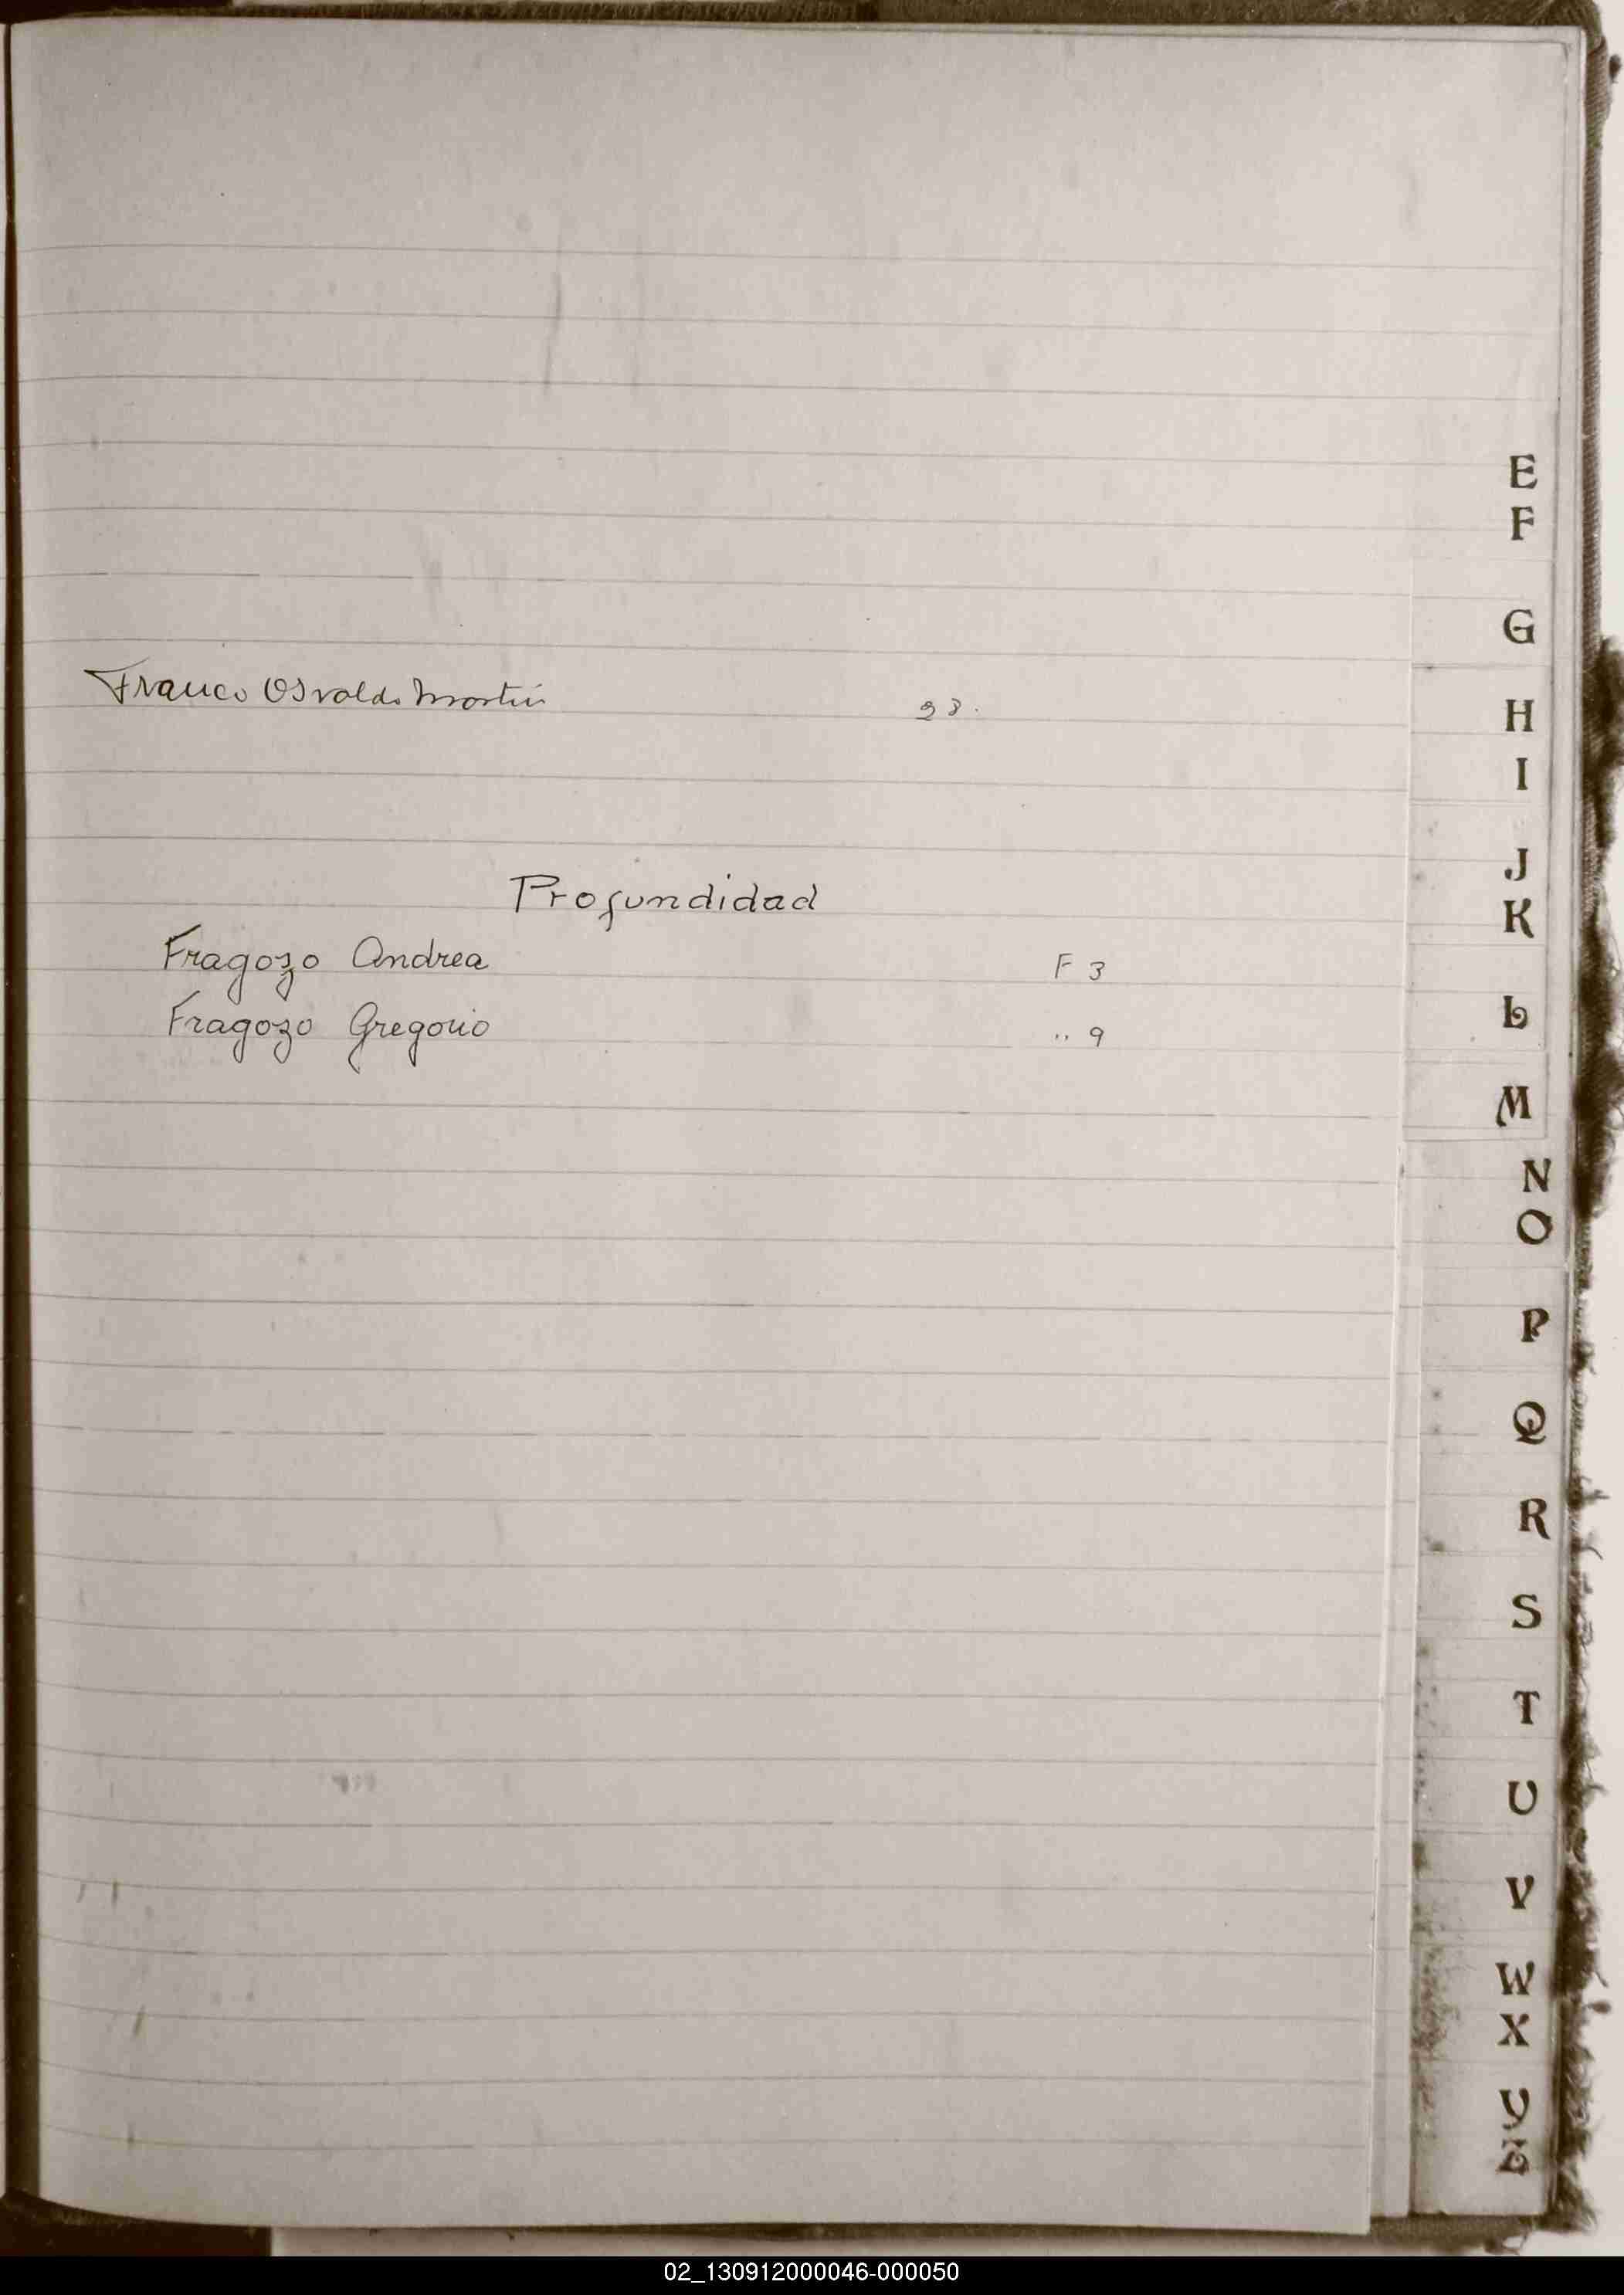 Franco Osvaldo Martin 23.
Profundidad
Fragozo Andrea F 3
Fragozo Gregorio ,, 9
E
F
G
H
I
J
K
L
M
N
O
P
Q
R
S
T
U
V
W
X
Y
Z
02_130912000046-000050